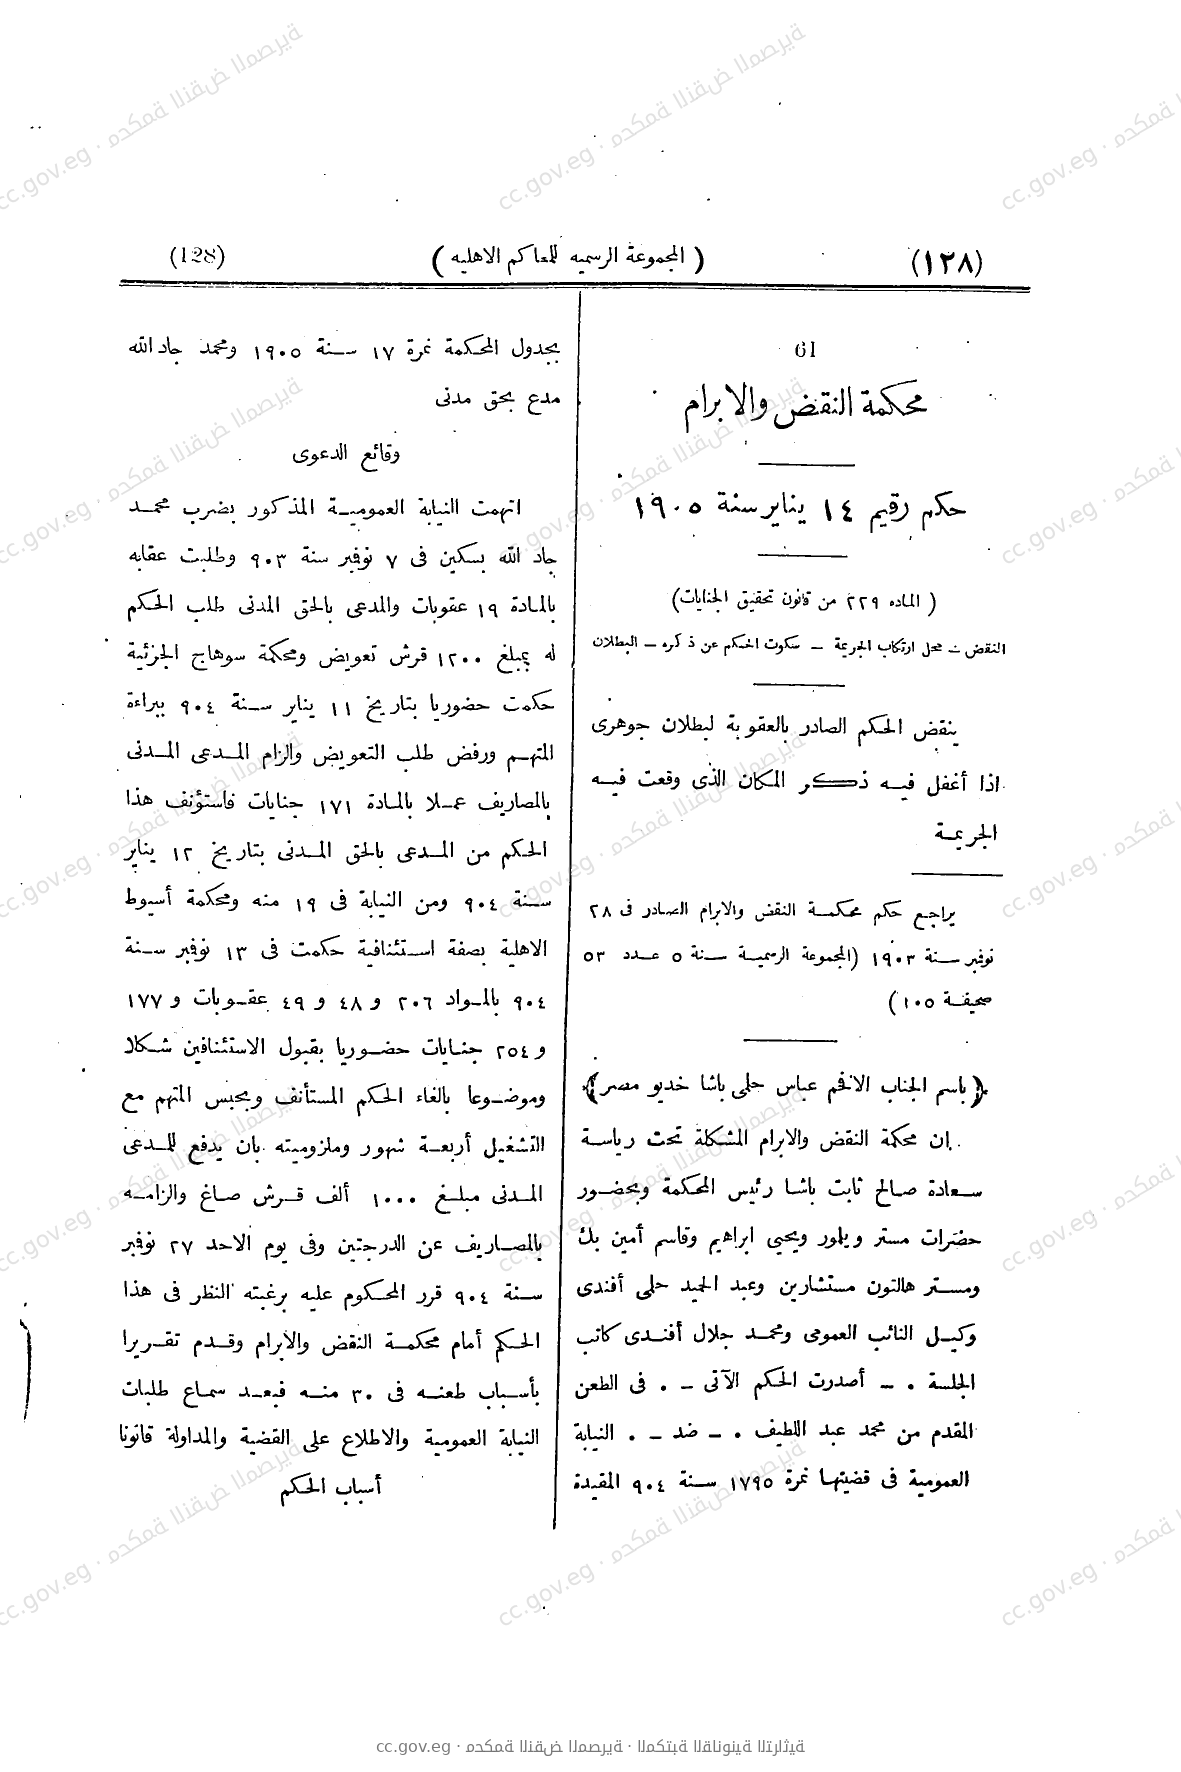 (١٢٨) ( المجموعة الرسميه للمحاكم الاهليه ) (128)
61
محكمة النقض والابرام
حكم رقيم ١٤ يناير سنة ١٩٠٥
( الماده ٢٢٩ من قانون تحقيق الجنايات)
النقض – محل ارتكاب الجريمة – سكوت الحكم عن ذكره – البطلان
ينقض الحكم الصادر بالعقوبة لبطلان جوهرى
اذا أغفل فيه ذكر المكان الذى وقعت فيه
الجريمة
يراجع حكم محكمة النقض والابرام الصادر فى ٢٨
نوفمبر سنة ١٩٠٣ (المجموعة الرسمية سنة ٥ عدد ٥٣
صحيفة ١٠٥)
﴿باسم الجناب الافخم عباس حلمى باشا خديو مصر﴾
إن محكمة النقض والابرام المشكلة تحت رياسة
سعادة صالح ثابت باشا رئيس المحكمة وبحضور
حضرات مستر ويلمور ويحيى ابراهيم وقاسم أمين بك
ومستر هالتون مستشارين وعبد الحميد حلمى أفندى
وكيل النائب العمومى ومحمد جلال أفندى كاتب
الجلسة . – أصدرت الحكم الآتى – . فى الطعن
المقدم من محمد عبد اللطيف . – ضد – . النيابة
العمومية فى قضيتها نمرة ١٧٩٥ سنة ٩٠٤ المقيدة
بجدول المحكمة نمرة ١٧ سنة ١٩٠٥ ومحمد جاد الله
مدع بحق مدنى
وقائع الدعوى
اتهمت النيابة العمومية المذكور بضرب محمد
جاد الله بسكين فى ٧ نوفمبر سنة ٩٠٣ وطلبت عقابه
بالمادة ١٩ عقوبات والمدعى بالحق المدنى طلب الحكم
له بمبلغ ١٢٠٠ قرش تعويض ومحكمة سوهاج الجزئية
حكمت حضوريا بتاريخ ١١ يناير سنة ٩٠٤ ببراءة
المتهم ورفض طلب التعويض والزام المدعى المدنى
بالمصاريف عملا بالمادة ١٧١ جنايات فاستؤنف هذا
الحكم من المدعى بالحق المدنى بتاريخ ١٢ يناير
سنة ٩٠٤ ومن النيابة فى ١٩ منه ومحكمة أسيوط
الاهلية بصفة استئنافية حكمت فى ١٣ نوفمبر سنة
٩٠٤ بالمواد ٢٠٦ و ٤٨ و ٤٩ عقوبات و ١٧٧
و ٢٥٤ جنايات حضوريا بقبول الاستئنافين شكلا
وموضوعا بالغاء الحكم المستأنف وبحبس المتهم مع
التشغيل أربعة شهور وملزوميته بان يدفع للمدعى
المدنى مبلغ ١٠٠٠ ألف قرش صاغ والزامه
بالمصاريف عن الدرجتين وفى يوم الاحد ٢٧ نوفمبر
سنة ٩٠٤ قرر المحكوم عليه برغبته النظر فى هذا
الحكم أمام محكمة النقض والابرام وقدم تقريرا
بأسباب طعنه فى ٣٠ منه فبعد سماع طلبات
النيابة العمومية والاطلاع على القضية والمداولة قانونا
أسباب الحكم
cc.gov.eg · محكمة النقض المصرية · المكتبة القانونية التراثية